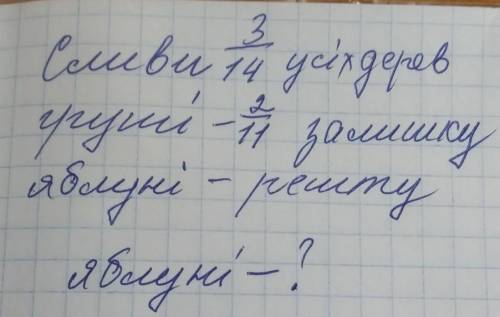 Сливи 3/14 усіх дерев
груші - 2/11 залишку
яблуні - решту
яблуні - ?